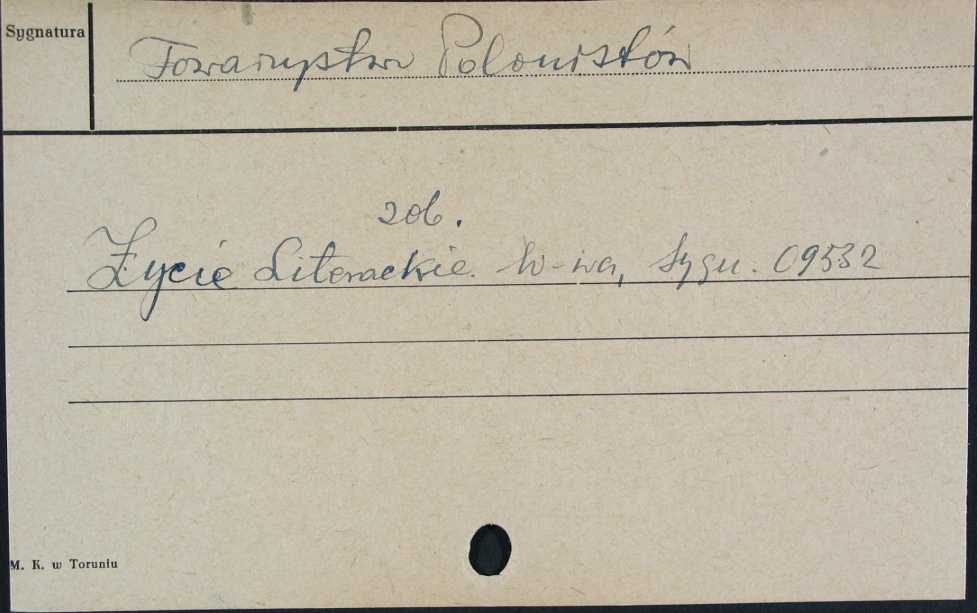 Sygnatura
Towarzystwo Polonistów
zob.
Życie Literackie. W-wa, Sygn. 09532
M. K. w Toruniu